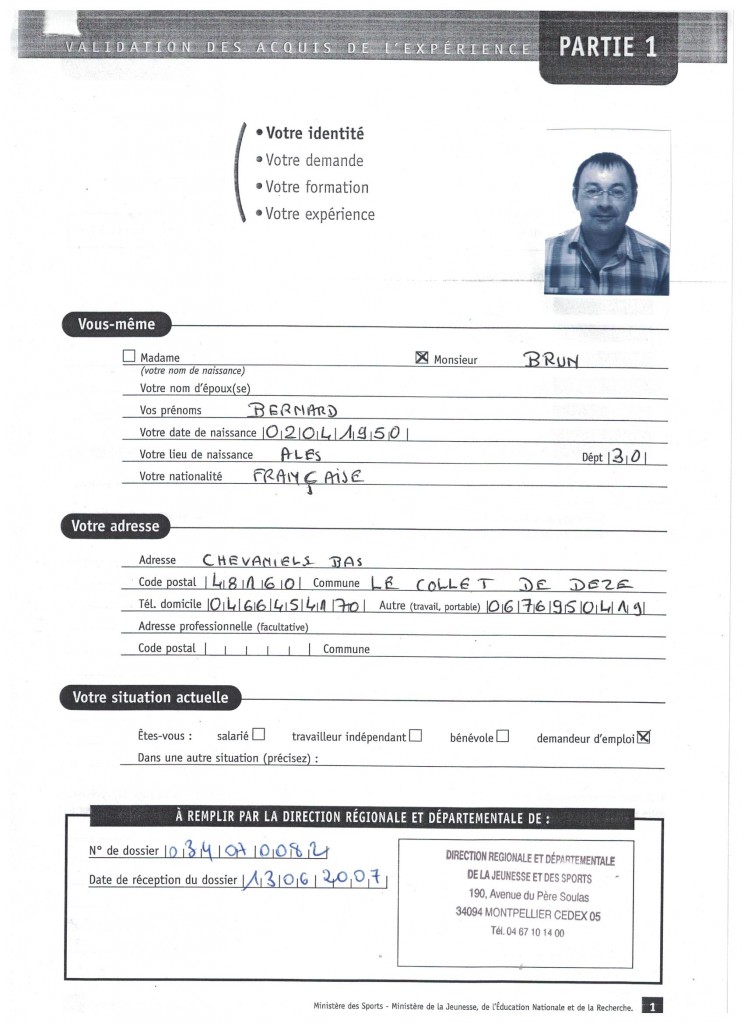 VALIDATION DES ACQUIS DE L'EXPÉRIENCE PARTIE 1
• Votre identité
• Votre demande
• Votre formation
• Votre expérience
Vous-même
Madame Monsieur BRUN
(votre nom de naissance)
Votre nom d'époux(se)
Vos prénoms BERNARD
Votre date de naissance 02041950
Votre lieu de naissance ALES Dépt 30
Votre nationalité FRANÇAISE
Votre adresse
Adresse CHEVANIELS BAS
Code postal 48160 Commune LE COLLET DE DEZE
Tél. domicile 0466454170 Autre (travail, portable) 0676950419
Adresse professionnelle (facultative)
Code postal Commune
Votre situation actuelle
Êtes-vous : salarié travailleur indépendant bénévole demandeur d'emploi
Dans une autre situation (précisez) :
À REMPLIR PAR LA DIRECTION RÉGIONALE ET DÉPARTEMENTALE DE :
N° de dossier
Date de réception du dossier 13062007
DIRECTION REGIONALE ET DÉPARTEMENTALE
DE LA JEUNESSE ET DES SPORTS
190, Avenue du Père Soulas
34094 MONTPELLIER CEDEX 05
Tél. 04 67 10 14 00
Ministère des Sports - Ministère de la Jeunesse, de l'Éducation Nationale et de la Recherche. 1